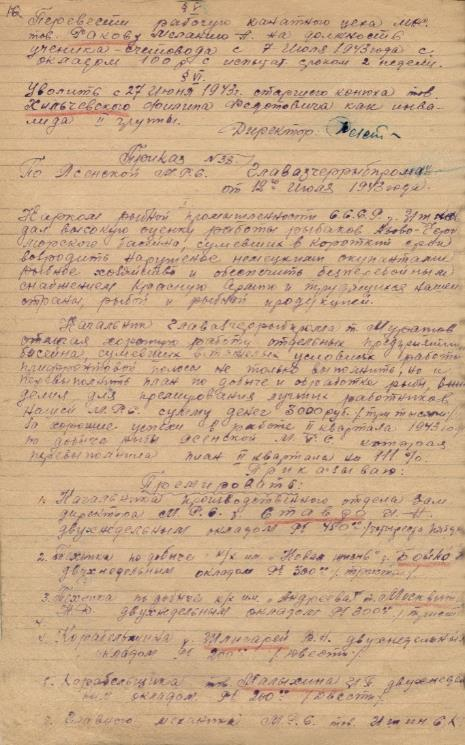 16. § V.
Перевести рабочую канатного цеха М.Р.С.
тов. Ракову Меланию А. на должность
ученика-счетовода с 7 Июля 1943 года с
окладом 100 р с испытат. сроком 2 недели.
§ VI.
Уволить с 27 Июня 1943 г. старшего конюха тов.
Хильчевского Филипа Федотовича как инва-
лида II группы.
Директор
Приказ № 33
По Ясенской М.Р.С. Главазчеррыбпрома
от 12го Июля 1943 года.
Нарком рыбной промышленности С.С.С.Р. т. Ишков
дал высокую оценку работы рыбаков Азово-Черно
морского басейна, сумевших в короткий срок
возродить нарушеное немецкими окупантами
рыбное хозяйство и обеспечить бесперебойным
снабжением Красную Армию и трудящихся нашей
страны рыбой и рыбной продукцией.
Начальник Главазчеррыбпрома т. Муратов
отмечая хорошую работу отдельных предприятий
басейна, сумевших в тяжелых условиях работы
прифронтовой полосы не только выполнить, но и
перевыполнить план по добыче и обработке рыбы, вы
делил для премирования лучших работников
нашей М.Р.С. сумму денег 3000 руб. /три тысячи/
за хорошие успехи в работе II квартала 1943 года
по добыче рыбы Ясенской М.Р.С. которая
перевыполнила план II квартала на 111%.
Приказываю:
Премировать:
1. Начальника производственного отдела зам
директора М.Р.С. т. Ставдо
двухнедельным окладом 450
2. Техника по добыче к/х им. "Новая жизнь" т. Бойко
двухнедельным окладом 300 /триста/
3. Техника по добыче к/х им. Андреева т.
двухнедельным окладом 300 /триста/
4. Корабельщика т. двухнедельным
окладом 200 /двести/
5. Корабельщика тов Малыхина двухнедель
ным окладом 200 /двести/
Главного механика М.Р.С. тов.